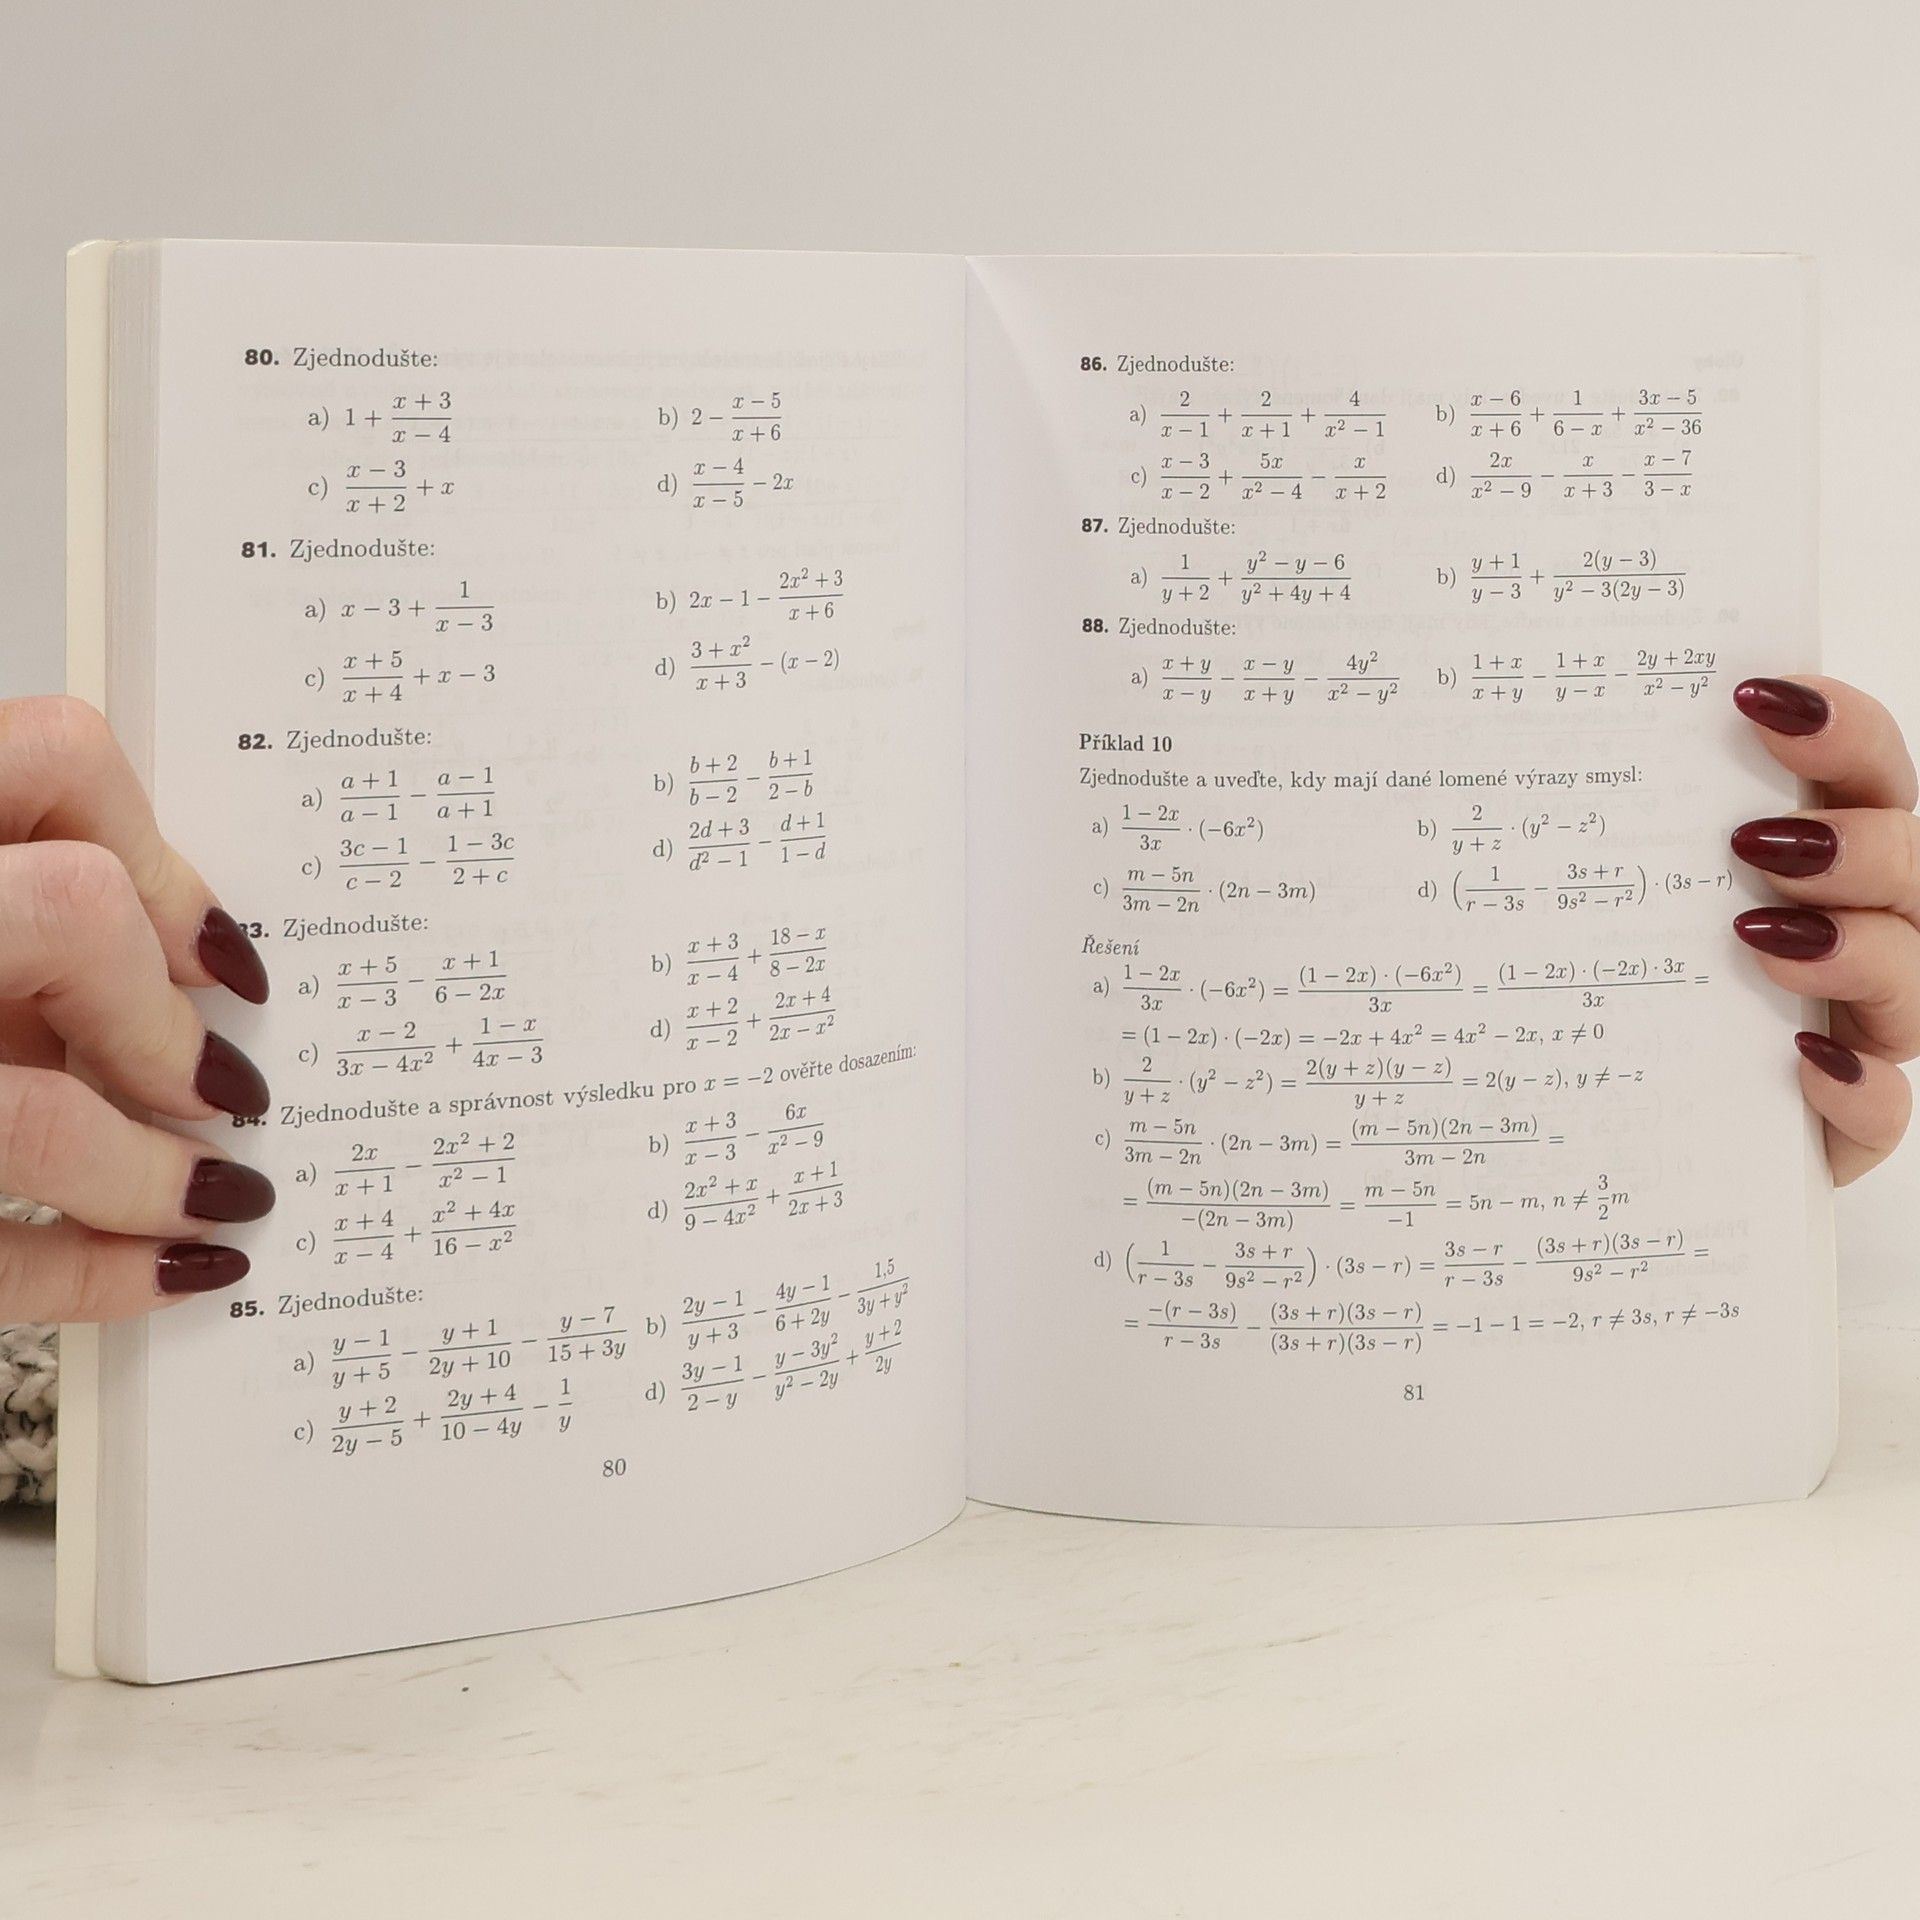 80. Zjednodušte:
a) 1 + (x + 3)/(x − 4) b) 2 − (x − 5)/(x + 6)
c) (x − 3)/(x + 2) + x d) (x − 4)/(x − 5) − 2x
81. Zjednodušte:
a) x − 3 + 1/(x − 3) b) 2x − 1 − (2x² + 3)/(x + 6)
c) (x + 5)/(x + 4) + x − 3 d) (3 + x²)/(x + 3) − (x − 2)
82. Zjednodušte:
a) (a + 1)/(a − 1) − (a − 1)/(a + 1) b) (b + 2)/(b − 2) − (b + 1)/(2 − b)
c) (3c − 1)/(c − 2) − (1 − 3c)/(2 + c) d) (2d + 3)/(d² − 1) − (d + 1)/(1 − d)
83. Zjednodušte:
a) (x + 5)/(x − 3) − (x + 1)/(6 − 2x) b) (x + 3)/(x − 4) + (18 − x)/(8 − 2x)
c) (x − 2)/(3x − 4x²) + (1 − x)/(4x − 3) d) (x + 2)/(x − 2) + (2x + 4)/(2x − x²)
84. Zjednodušte a správnost výsledku pro x = −2 ověřte dosazením:
a) 2x/(x + 1) − (2x² + 2)/(x² − 1) b) (x + 3)/(x − 3) − 6x/(x² − 9)
c) (x + 4)/(x − 4) + (x² + 4x)/(16 − x²) d) (2x² + x)/(9 − 4x²) + (x + 1)/(2x + 3)
85. Zjednodušte:
a) (y − 1)/(y + 5) − (y + 1)/(2y + 10) − (y − 7)/(15 + 3y) b) (2y − 1)/(y + 3) − (4y − 1)/(6 + 2y) − 1,5/(3y + y²)
c) (y + 2)/(2y − 5) + (2y + 4)/(10 − 4y) − 1/y d) (3y − 1)/(2 − y) − (y − 3y²)/(y² − 2y) + (y + 2)/2y
80
86. Zjednodušte:
a) 2/(x − 1) + 2/(x + 1) + 4/(x² − 1) b) (x − 6)/(x + 6) + 1/(6 − x) + (3x − 5)/(x² − 36)
c) (x − 3)/(x − 2) + 5x/(x² − 4) − x/(x + 2) d) 2x/(x² − 9) − x/(x + 3) − (x − 7)/(3 − x)
87. Zjednodušte:
a) 1/(y + 2) + (y² − y − 6)/(y² + 4y + 4) b) (y + 1)/(y − 3) + 2(y − 3)/(y² − 3(2y − 3))
88. Zjednodušte:
a) (x + y)/(x − y) − (x − y)/(x + y) − 4y²/(x² − y²) b) (1 + x)/(x + y) − (1 + x)/(y − x) − (2y + 2xy)/(x² − y²)
Příklad 10
Zjednodušte a uveďte, kdy mají dané lomené výrazy smysl:
a) (1 − 2x)/3x · (−6x²) b) 2/(y + z) · (y² − z²)
c) (m − 5n)/(3m − 2n) · (2n − 3m) d) (1/(r − 3s) − (3s + r)/(9s² − r²)) · (3s − r)
Řešení
a) (1 − 2x)/3x · (−6x²) = (1 − 2x) · (−6x²)/3x = (1 − 2x) · (−2x) · 3x/3x =
= (1 − 2x) · (−2x) = −2x + 4x² = 4x² − 2x, x ≠ 0
b) 2/(y + z) · (y² − z²) = 2(y + z)(y − z)/(y + z) = 2(y − z), y ≠ −z
c) (m − 5n)/(3m − 2n) · (2n − 3m) = (m − 5n)(2n − 3m)/(3m − 2n) =
= (m − 5n)(2n − 3m)/−(2n − 3m) = (m − 5n)/−1 = 5n − m, n ≠ 3/2 m
d) (1/(r − 3s) − (3s + r)/(9s² − r²)) · (3s − r) = (3s − r)/(r − 3s) − (3s + r)(3s − r)/(9s² − r²) =
= −(r − 3s)/(r − 3s) − (3s + r)(3s − r)/(3s + r)(3s − r) = −1 − 1 = −2, r ≠ 3s, r ≠ −3s
81